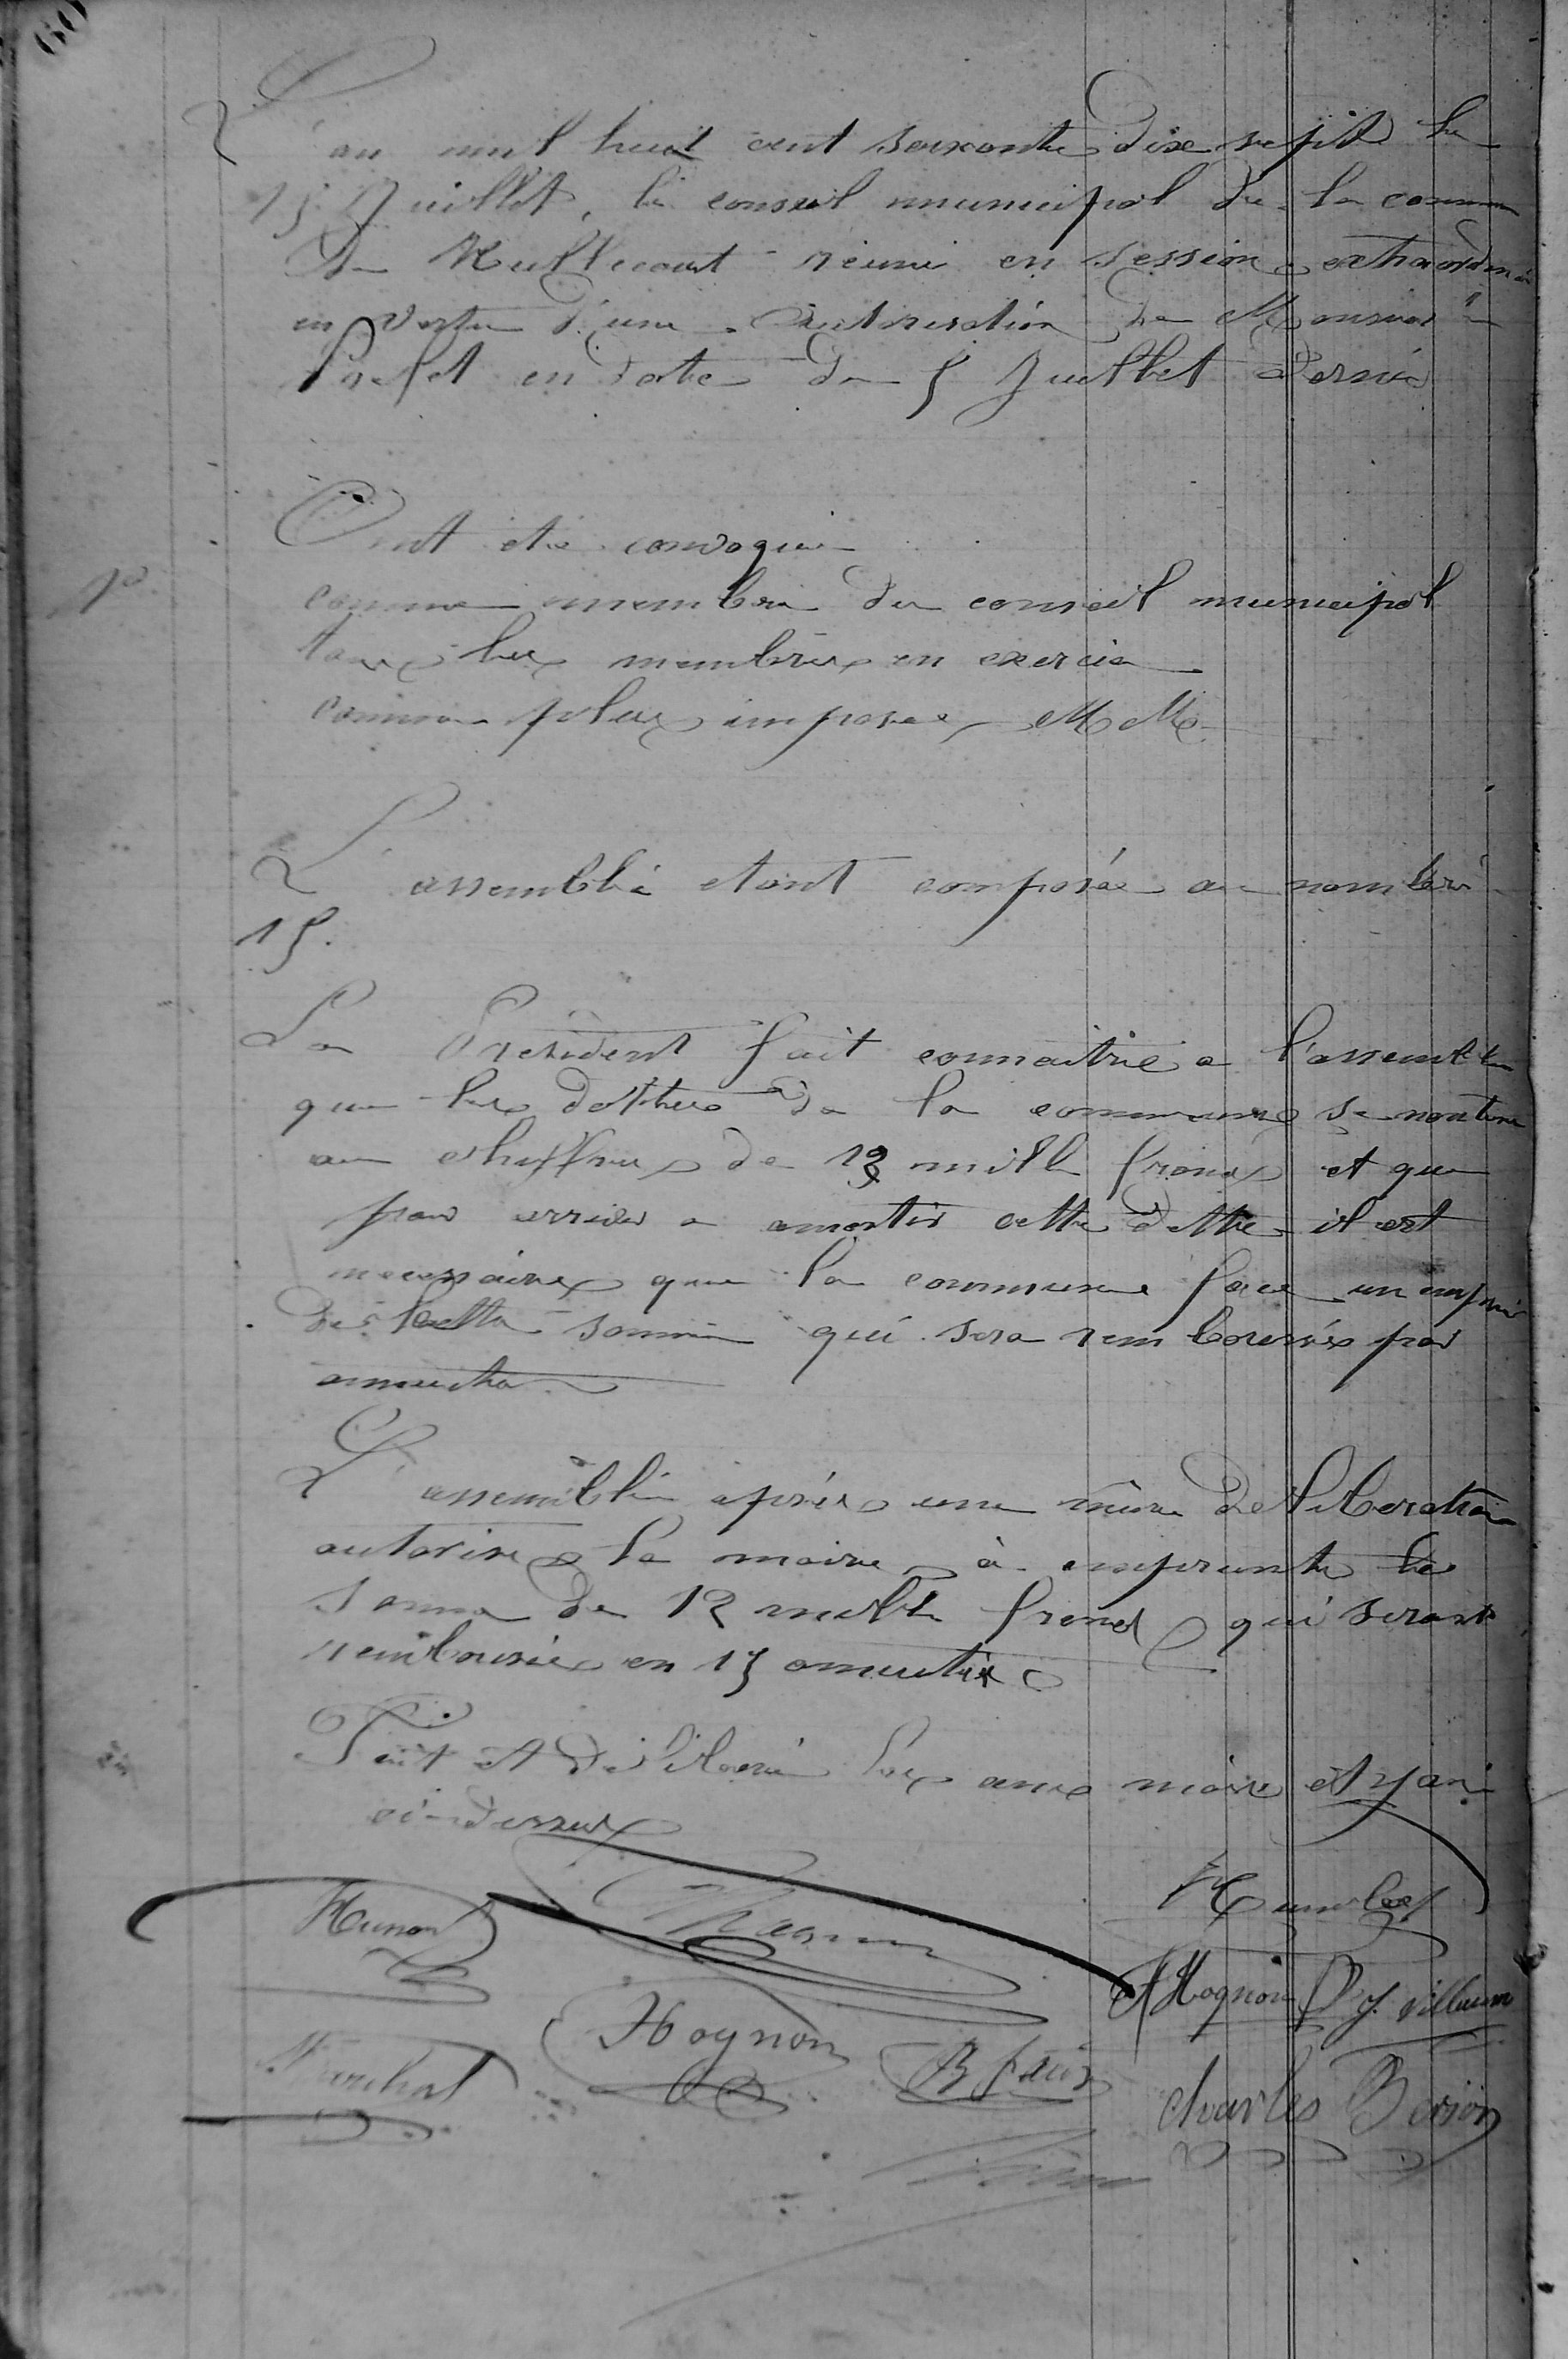 L'an mil huit cent soixante dix sept le
15 Juillet, le conseil municipal de la commune
de réuni en session extraordin
en vertu d'une autorisation de Monsieur le
Prefet en date du 5 Juillet dernier
Ont été convoqué
comme membre du conseil municipal
tous les membres en exercice
comme plus imposes MM
L'assemblée etant composée au nombre
15.
Le Président fait connaitre a l'assemblee
que les dettes de la commune se monten
au chiffre de 12 mille francs et que
pour arriver a amortir cette dette il est
necessaire que la commune face un emprun
de cette somme qui sera remboursée par
annuités
L'assemblée après une mure deliberation
autorise le maire à emprunter la
somme de 12 mille francs qui seront
remboursée en 15 annuitée
Fait et délibéré les ans mois et jour
ci-dessus
Hognon
Hognon J. Villaume
Charles